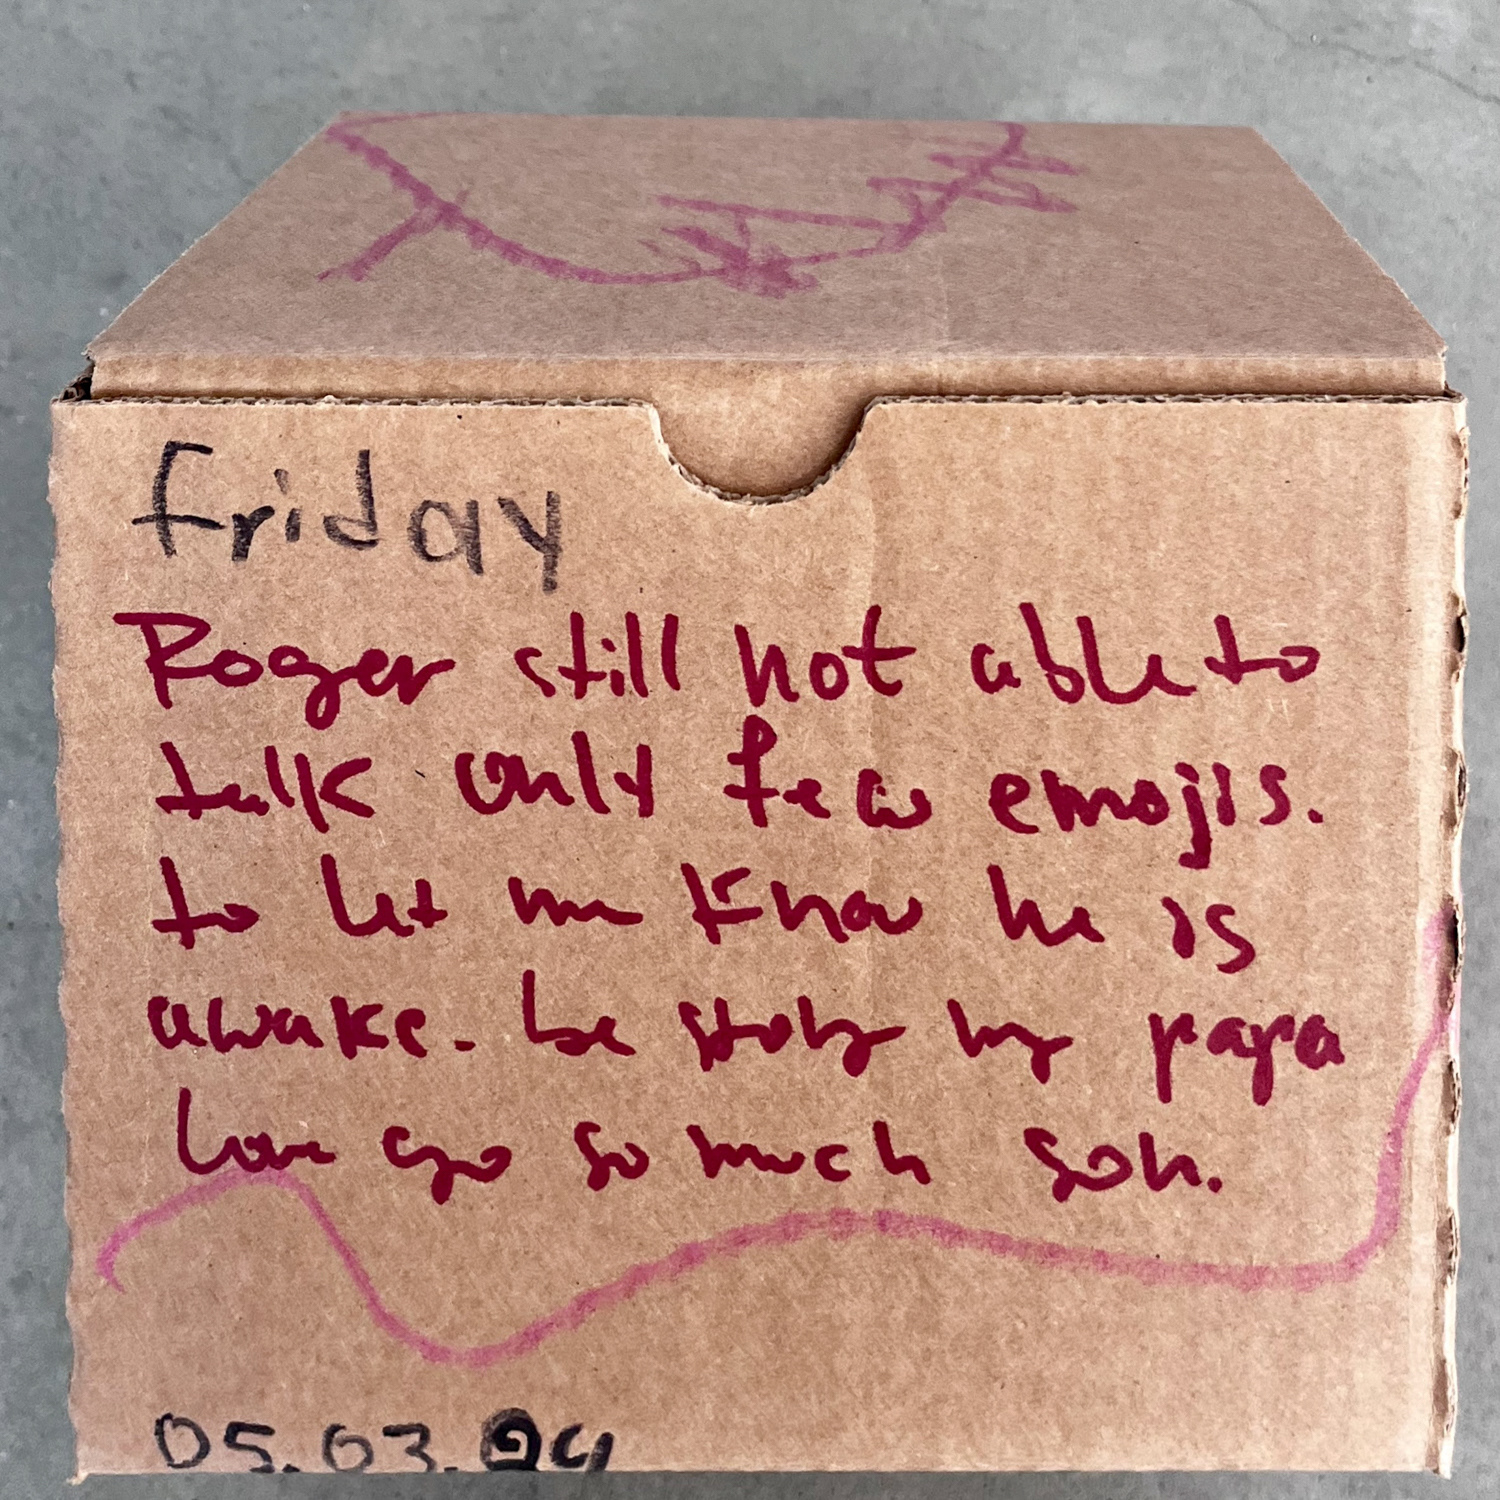 Friday
Roger still not able to
talk only few emojis.
to let me know he is
awake. be strong my papa
love you so much son.
05.03.24